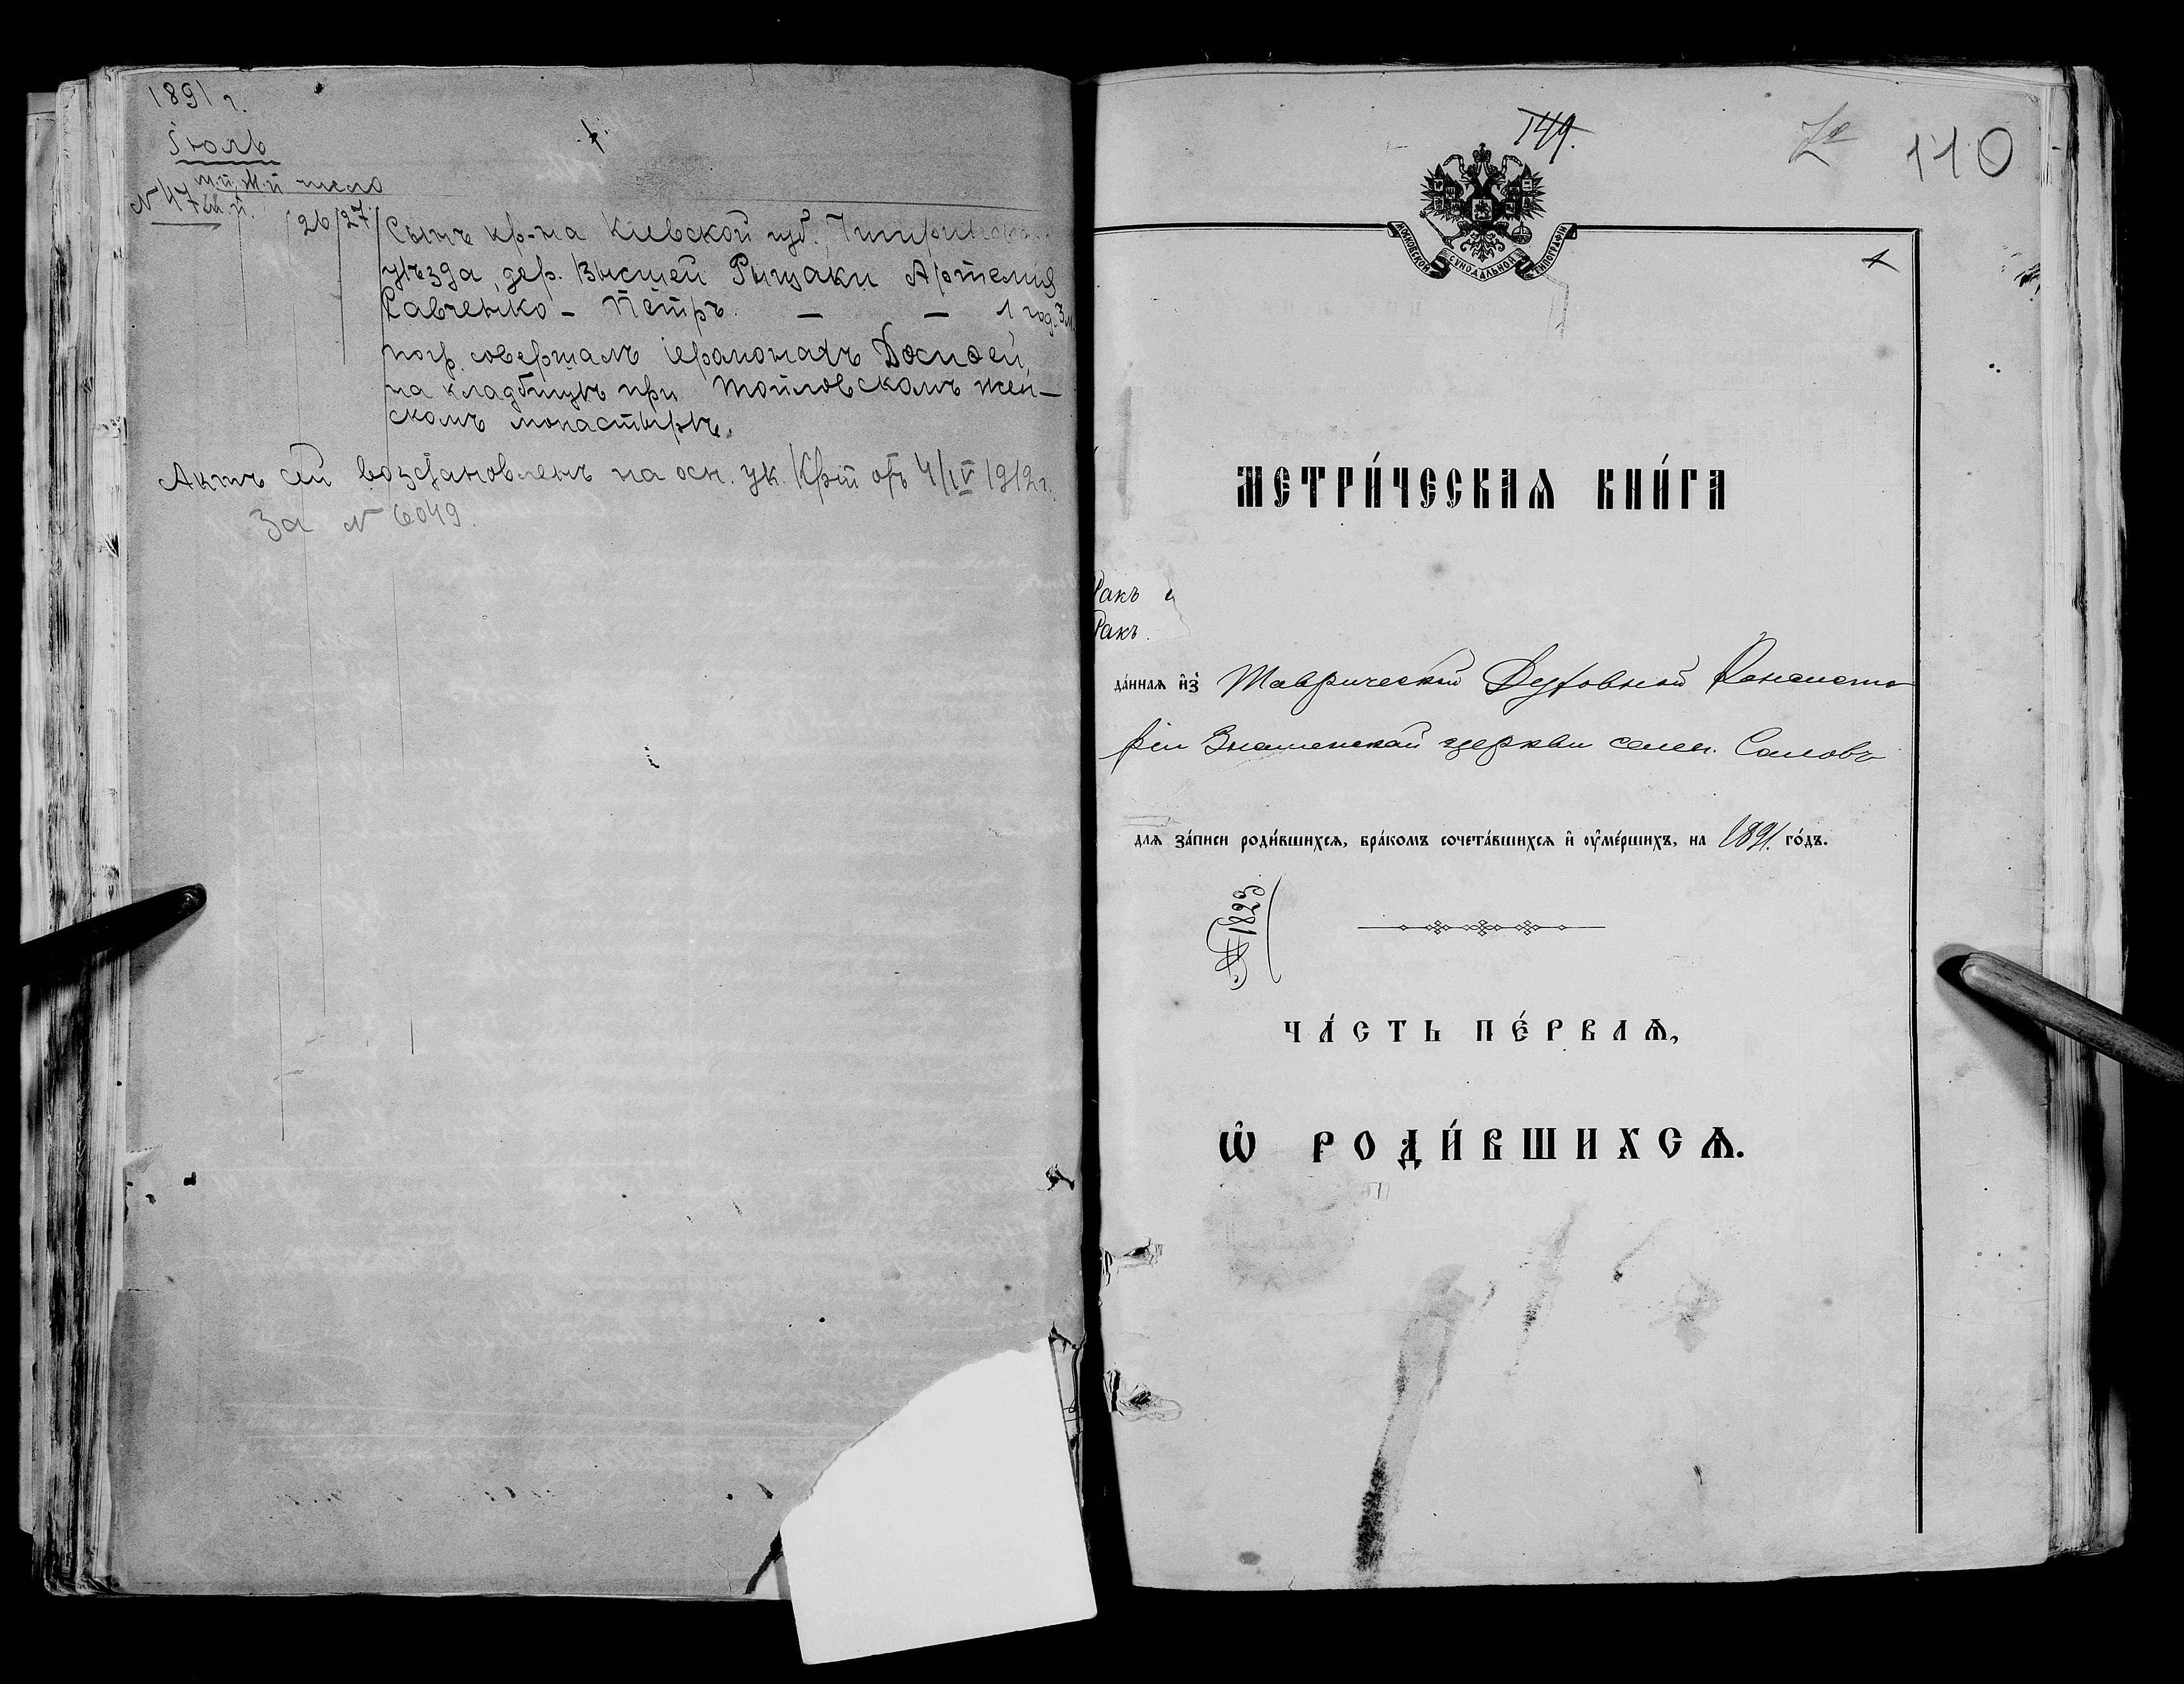 1891 г.
Іюль
м.п. ж.п. число
№ 47 м.п.
26 27 Сынъ кр-на Кіевской губ.
уѣзда, дер. Высшей Рыщаки Артемия
Савченко – Пётръ. – – 1 год. 3 м.
погр. совершалъ іеромонахъ Досиѳей,
на кладбищѣ при Топловскомъ жен–
скомъ монастырѣ.
Актъ сей возстановленъ на осн. ук. отъ 4/IV 1912 г.
За № 6049.
149.
110
МОСКОВСКОЙ СѴНОДАЛЬНОЙ ТИПОГРАФІИ
МЕТРИ́ЧЕСКАѦ КНИ́ГА
акъ и
акъ.
да́ннаѧ и҆зъ Таврической Духовной Консисто
ріи Знаменской церкви селен. Саловъ
длѧ за́писи роди́вшихсѧ, бра́комъ сочета́вшихсѧ и҆ оу҆ме́ршихъ, на 1891. го́дъ.
№ 1823
ЧА́СТЬ ПЕ́РВАѦ,
Ѡ҆ РОДИ́ВШИХСѦ.